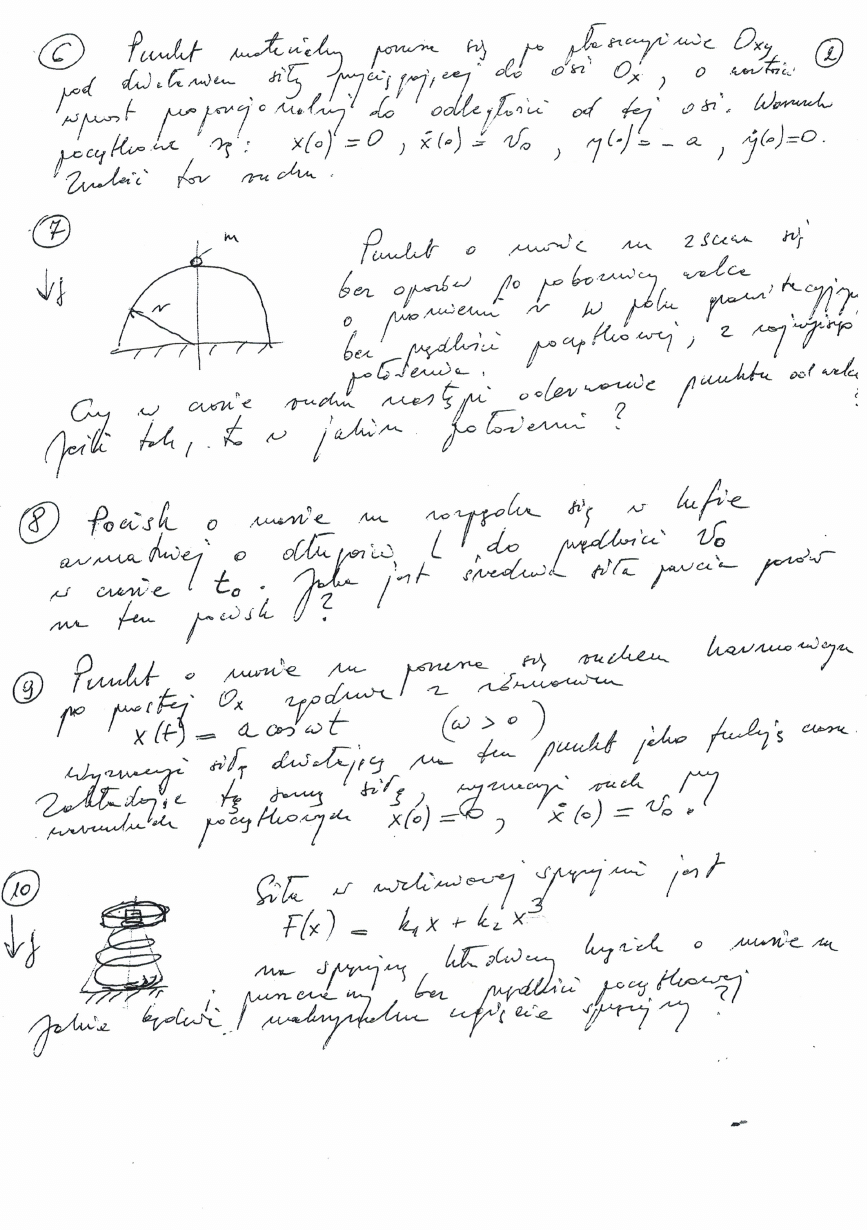 ⑥ Punkt materialny porusza się po płaszczyźnie Oxy ②
pod działaniem siły przyciągającej do osi Ox, o wartości
wprost proporcjonalnej do odległości od tej osi. Warunki
początkowe są: x(0) = 0, ẋ(0) = v₀, y(0) = - a, ẏ(0) = 0.
Znaleźć tor ruchu.
⑦ m
↓g
r
Punkt o masie m zsuwa się
bez oporów po pobocznicy walca
o promieniu r w polu grawitacyjnym
bez prędkości początkowej, z najwyższego
położenia.
Czy w czasie ruchu nastąpi oderwanie punktu od walca?
Jeśli tak, to w jakim położeniu?
⑧ Pocisk o masie m rozpędza się w lufie
armatniej o długości L do prędkości v₀
w czasie t₀. Jaka jest średnia siła parcia gazów
na ten pocisk?
⑨ Punkt o masie m porusza się ruchem harmonicznym
po prostej Ox zgodnie z równaniem
x(t) = a cos ωt (ω > 0)
Wyznaczyć siłę działającą na ten punkt jako funkcję czasu.
Zakładając tę samą siłę, wyznaczyć ruch przy
warunkach początkowych x(0) = 0, ẋ(0) = v₀.
⑩
↓g
Siła w nieliniowej sprężynie jest
F(x) = k₁x + k₂x³
na sprężynę kładziemy krążek o masie m
i puszczamy bez prędkości początkowej
Jakie będzie maksymalne ugięcie sprężyny?